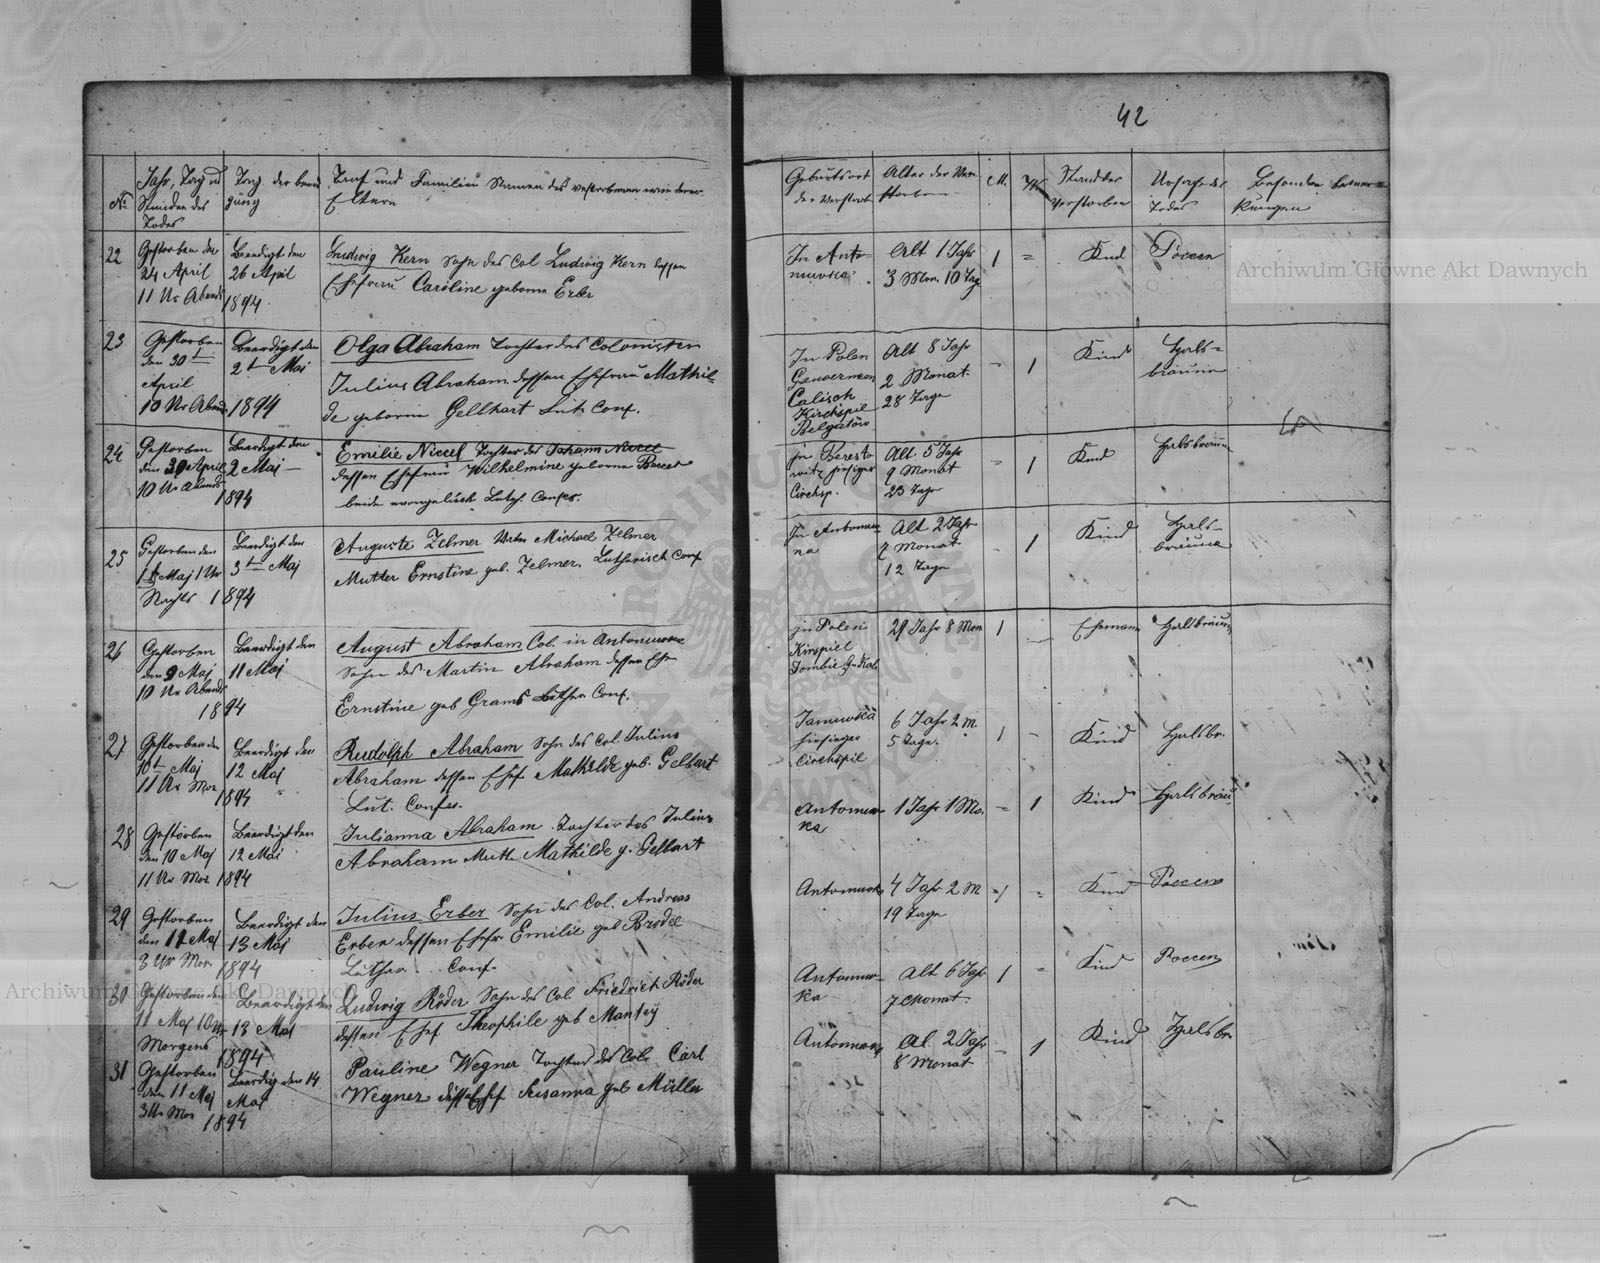 42
No
Jahr, Tag u
Stunden des
Todes
Tag der beerd
gung
Tauf und Familien Namen des verstorbenen wie deren
Eltern
Geburtsort
der Verstorb
Alter der Ver
storbenen
M.
W
Stand der
Verstorben
Ursache des
Todes
Besondere bemer=
kungen
22
Gestorben den
24 April
11 Ur Abends
Beerdigt den
26 April
1894.
Ludwig Kern Sohn des Col Ludwig Kern dessen
Ehefrau Caroline geborne Erber
In Anto
nuwka
Alt 1 Jahr
3 Mon. 10 Tag
1
=
Kind
Poccen
23
Gestorben
den 30t
April
10 Ur Abend
Beerdigt den
2t Mai
1894
Olga Abraham Tochter des Colonisten
Julius Abraham dessen Ehefrau Mathil-
de geborne Gelbhart Lut. Conf.
In Polen
Gauvernem
Calisch
Kirchspil
Belgatow
Alt 8 Jahr
2 Monat.
28 Tage
-
1
Kind
Hals=
bräune
24
Gestorben
den 30 April
10 Ur Abends
Beerdigt den
2 Mai
1894
Emilie Niccel Tochter des Johann Niccel
dessen Ehefrau Wilhelmine geborne
beide evangelisch Luth. Confes.
in Beresto
witz hiesiger
Circhsp.
Alt 5 Jahr
9 Monat
23 Tage
-
1
Kind
Halsbräune
25
Gestorben den
1t Maj 1 Ur
Nachts
Beerdigt den
3t Maj
1894
Auguste Zelmer Vater Michael Zelmer
Mutter Ernstine geb. Zelmer. Lutherisch Conf
In Antonuw
na
Alt 2 Jahr
7 Monat.
12 Tage
-
1
Kind
Hals-
bräune
26
Gestorben
den 9 Maj
10 Ur Abends
Beerdigt den
11 Maj
1894
August Abraham Col. in Antonuwka
Sohn des Martin Abraham dessen Ehe
Ernstine geb Grams Luther Conf.
in Polen
Kirspiel
Dombie G. Kali
29 Jahr 8 Mon
1
-
Ehemann
Halsbräune
27
Gestorben den
10t Maj
11 Ur Mor
Beerdigt den
12 Maj
1894
Rudolph Abraham Sohn des Col. Julius
Abraham dessen Ehef Mathilde geb. Gelbart
Lut. Confes.
Januwka
hiesiger
Circhspil
6 Jahr 2 M.
5 Tage.
1
-
Kind
Halsbr.
28
Gestorben
den 10 Maj
11 Ur Mor
Beerdigt den
12 Mai
1894
Julianna Abraham Tochter des Julius
Abraham Mutt. Mathilde g. Gelbart
Antonuw
ka
1 Jahr 1 Mo.
-
1
Kind
Halsbräu
29
Gestorben
den 12 Maj
3 Ur Mor.
Beerdigt den
13 Mai
1894
Julius Erber Sohn des Col. Andreas
Erber dessen Ehefr Emilie geb Brodel
Luther. Conf.
Antonuwka
4 Jahr 2 M
19 Tage
1
-
Kind
Poccen
30
Gestorben den
11 Maj 10 Ur
Morgens
Beerdigt den
13 Mai
1894
Ludwig Röder Sohn des Col Friedrich Röder
dessen Ehef Theophile geb Mantey
Antonuw-
ka
Alt 6 Jahr
7 Monat.
1
-
Kind
Poccen
31
Gestorben
den 11 Maj
3 Ur Mor
Beerdig den 14
Mai
1894
Pauline Wegner Tochter des Col. Carl
Wegner dess Ehef Susanna geb Müller
Antonuwka
Al. 2 Jahr
8 Monat
-
1
Kind
Halsbr.
Archiwum Główne Akt Dawnych
Archiwum Główne Akt Dawnych